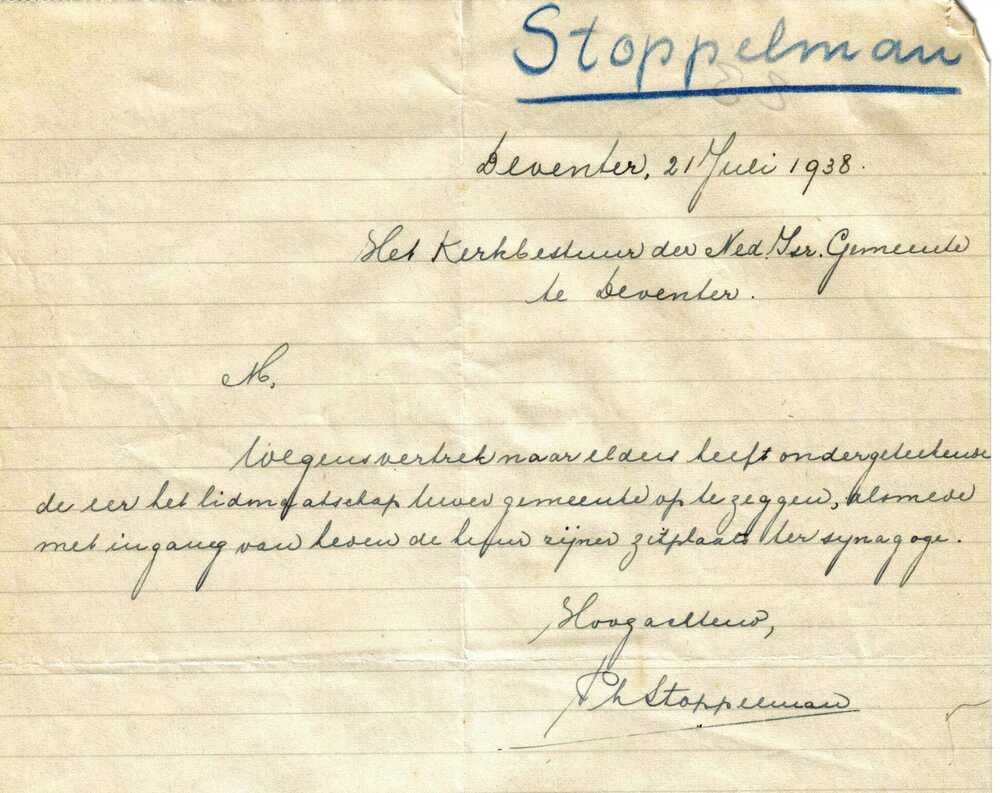 Stoppelman
Deventer, 21 Juli 1938.
Het Kerkbestuur der Ned. Isr. Gemeente
te Deventer.
M,
Wegens vertrek naar elders heeft ondergeteekende
de eer het lidmaatschap Uwer gemeente op te zeggen, alsmede
met ingang van heden de huur zijner zitplaats ter synagoge.
Hoogachtend,
Ph Stoppelman